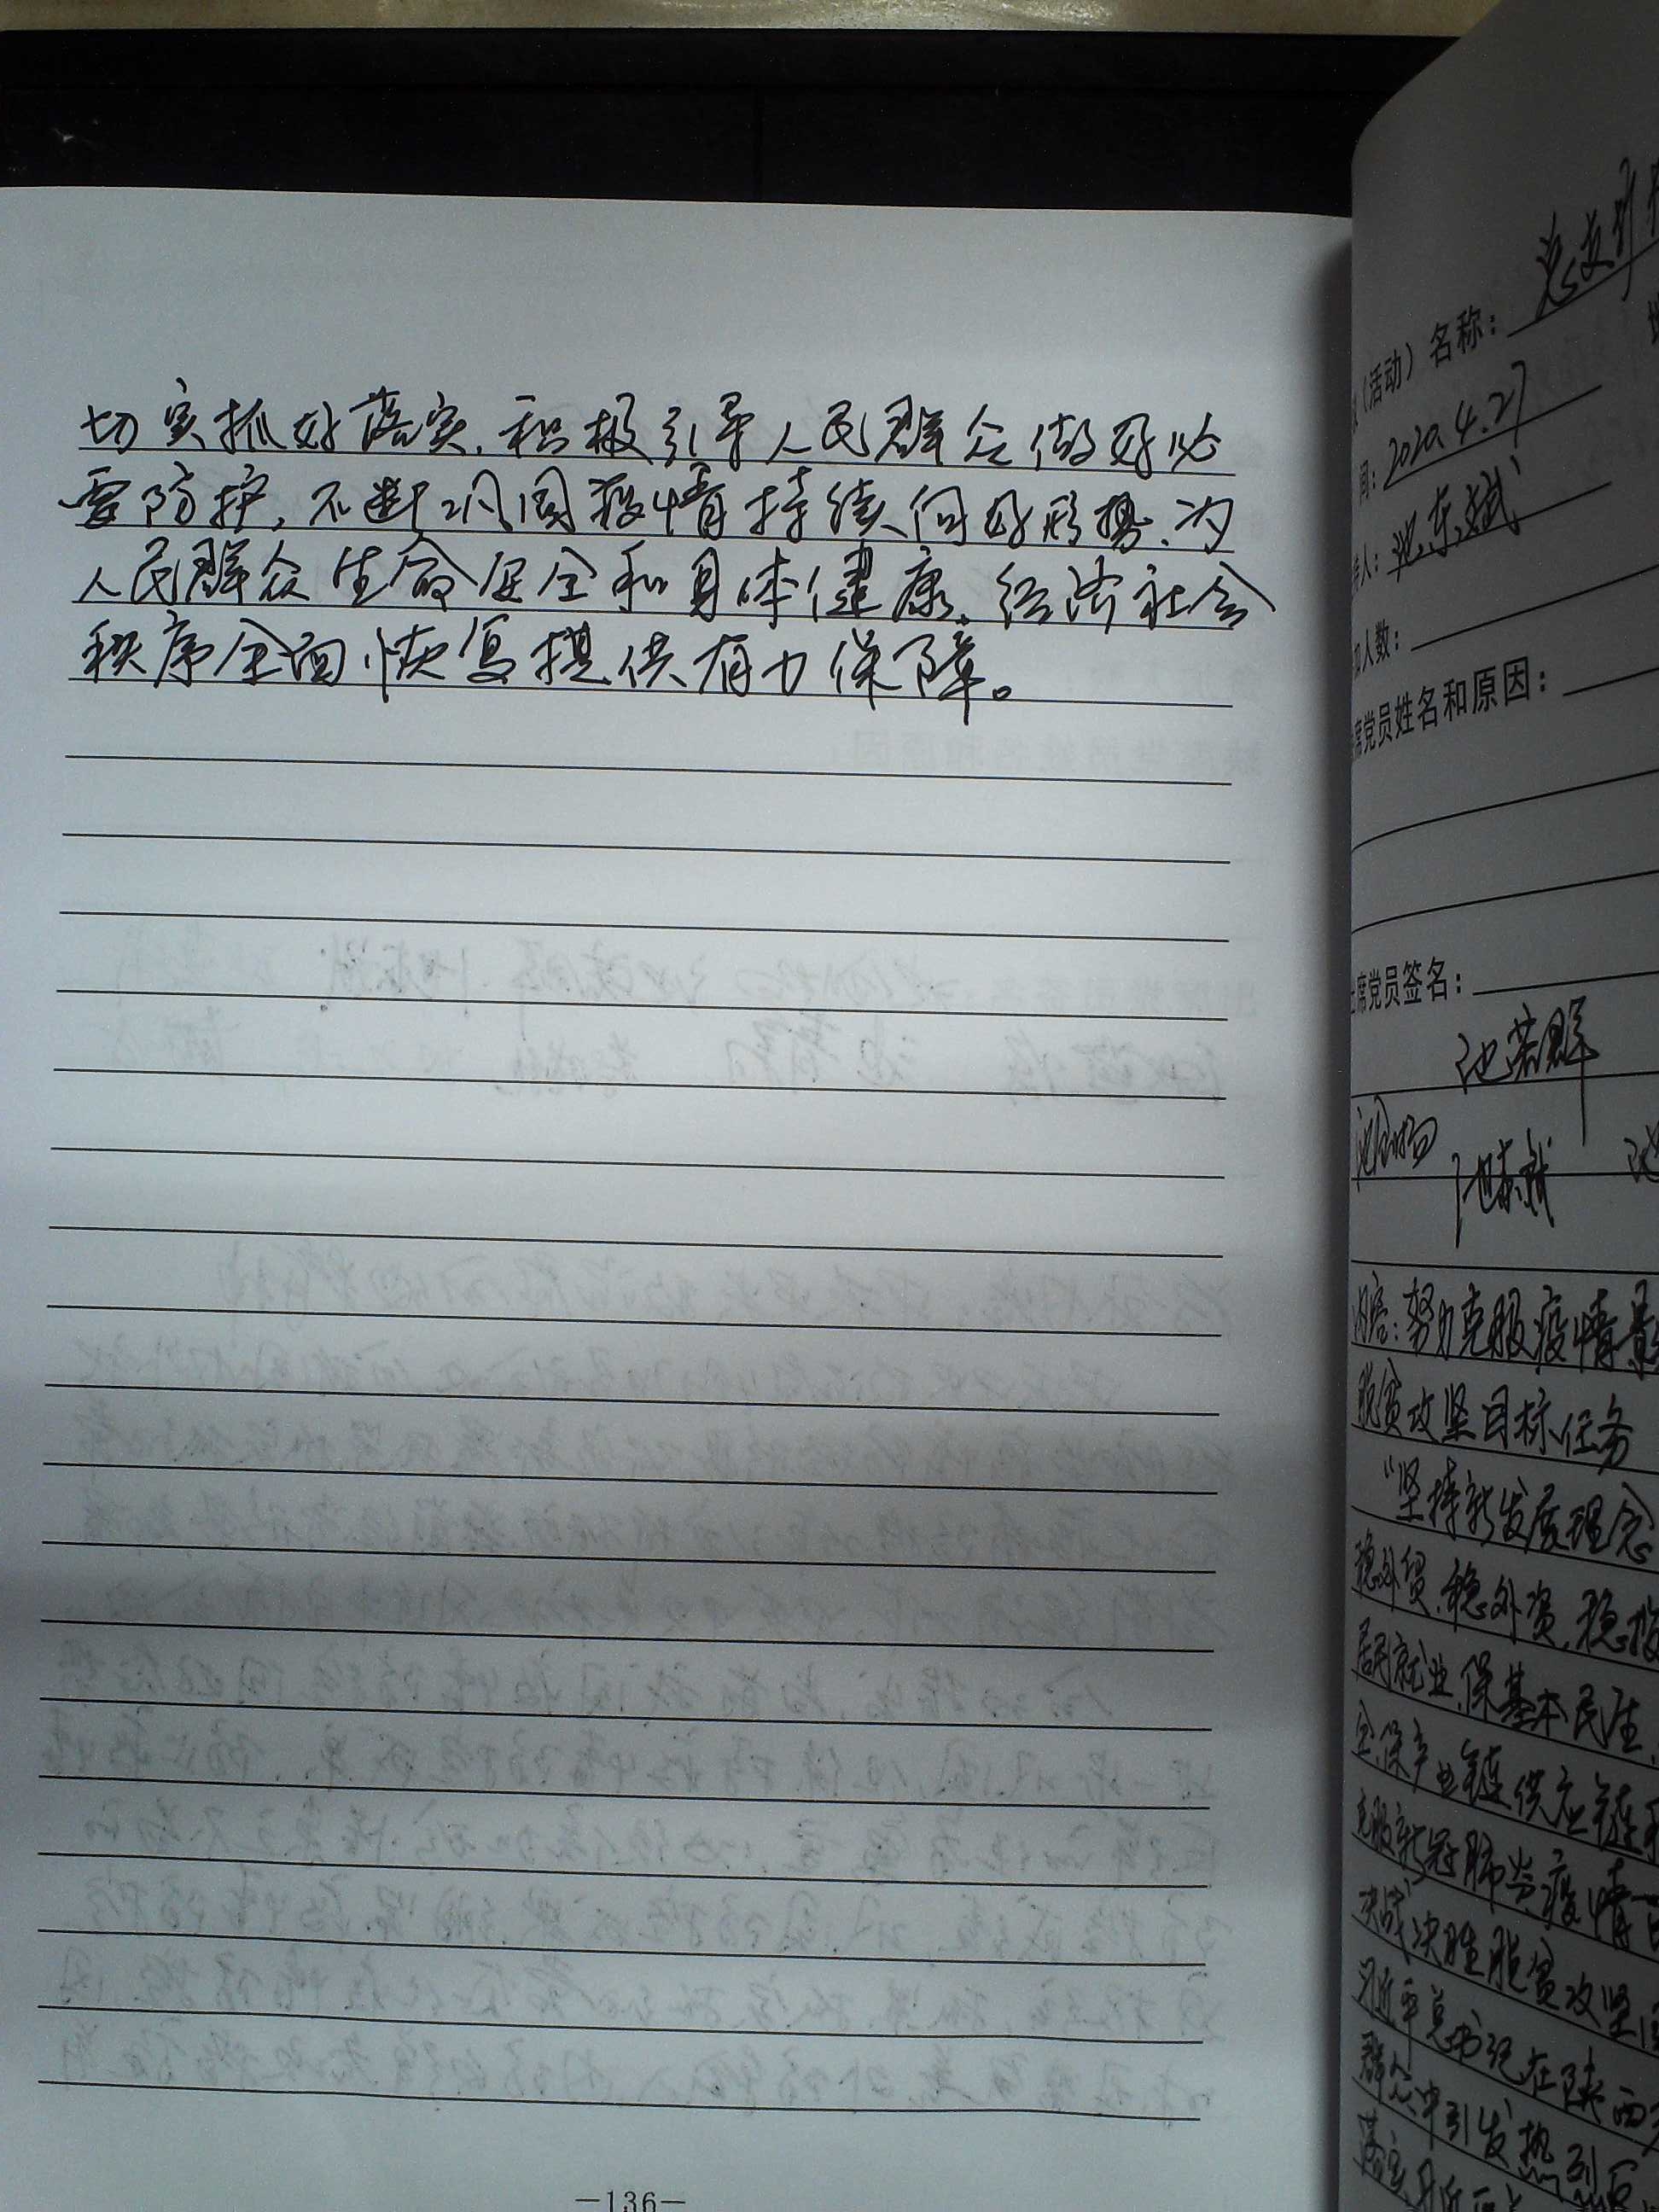 切实抓好落实,积极引导人民群众做好必
要防护,不断巩固疫情持续向好形势,为
人民群众生命安全和身体健康、经济社会
秩序全面恢复提供有力保障。
—136—
(活动)名称:
间:2020.4.27
人:池东斌
人数:
席党员姓名和原因:
席党员签名:
池若群
内容:努力克服疫情影
脱贫攻坚目标任务
“坚持新发展理念
稳外贸,稳外资,稳投
居民就业,保基本民生,
全,保产业链供应链
克服新冠肺炎疫情
决战决胜脱贫攻坚
习近平总书记在陕西
群众中引发热烈